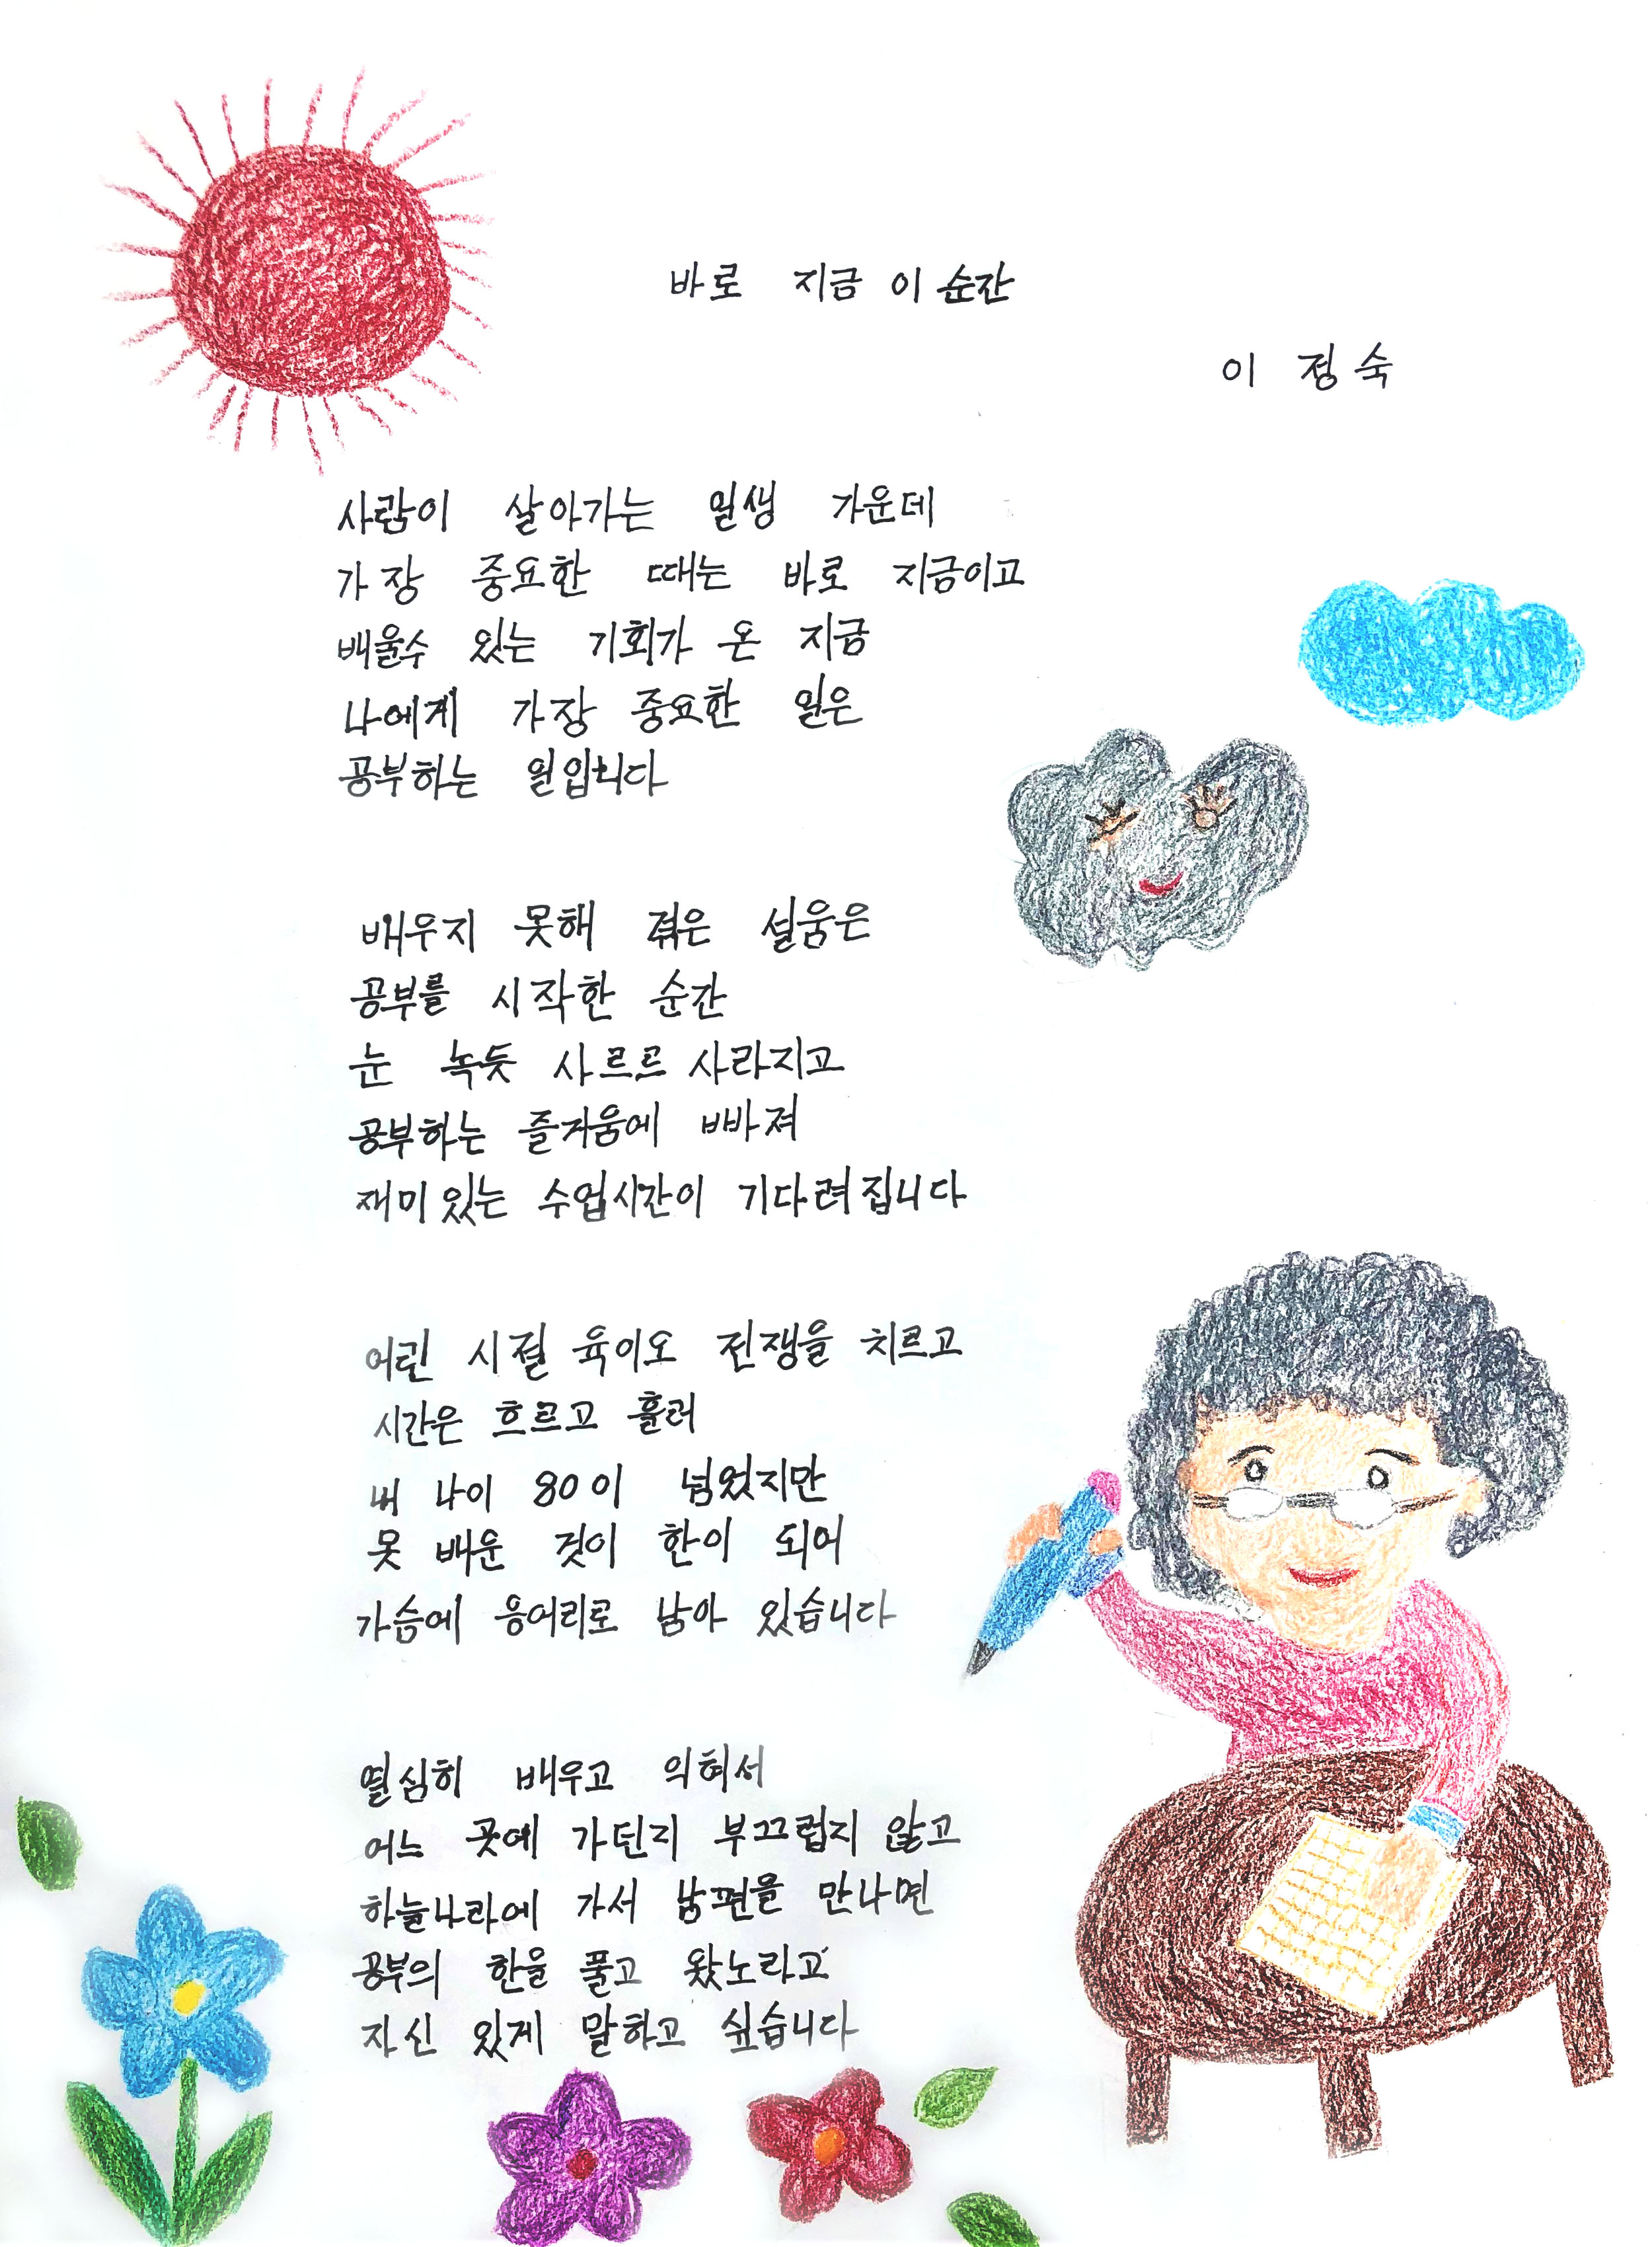 바로 지금 이 순간
이 정숙
사람이 살아가는 일생 가운데
가장 중요한 때는 바로 지금이고
배울수 있는 기회가 온 지금
나에게 가장 중요한 일은
공부하는 일입니다
배우지 못해 겪은 설움은
공부를 시작한 순간
눈 녹듯 사르르 사라지고
공부하는 즐거움에 빠져
재미있는 수업시간이 기다려집니다
어린 시절 육이오 전쟁을 치르고
시간은 흐르고 흘러
내 나이 80이 넘었지만
못 배운 것이 한이 되어
가슴에 응어리로 남아 있습니다
열심히 배우고 익혀서
어느 곳에 가던지 부끄럽지 않고
하늘나라에 가서 남편을 만나면
공부의 한을 풀고 왔노라고
자신 있게 말하고 싶습니다